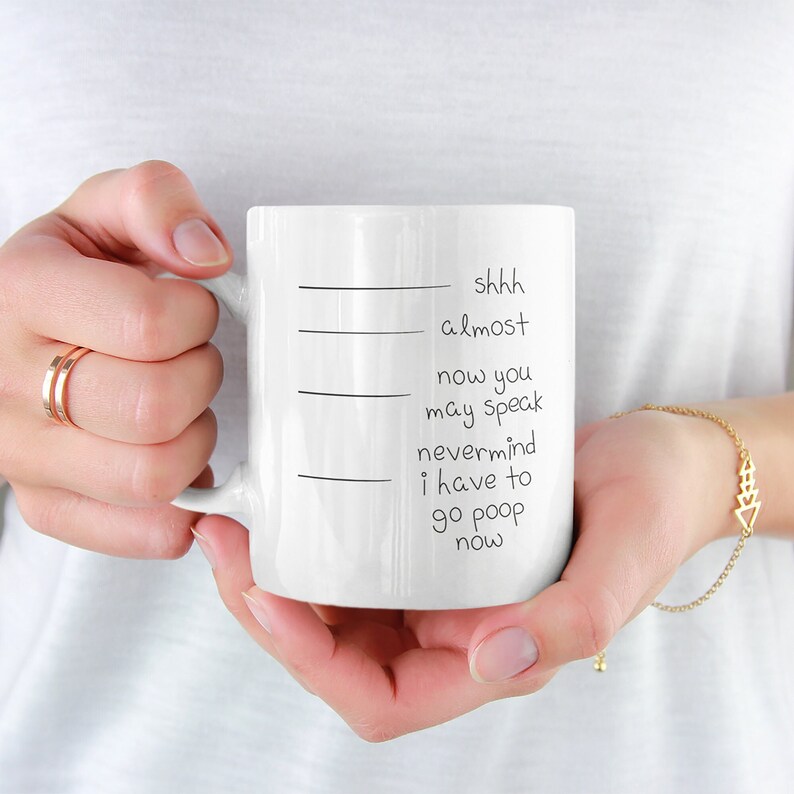 shhh
almost
now you
may speak
nevermind
i have to
go poop
now